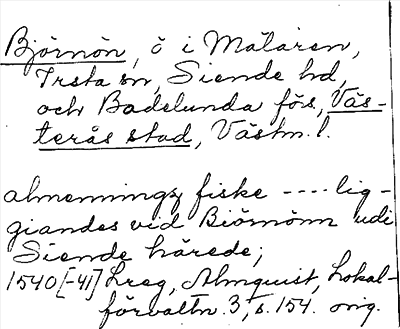 Björnön, ö i Mälaren,
Irsta sn, Siende hd,
och Badelunda förs, Väs-
terås stad, Västm. l.
almennings fiske ---- lig-
giandes vid Biörnönn udi
Siende härede;
1540[-41] Lreg, Almquist, Lokal-
förvaltn. 3, s. 154. orig.